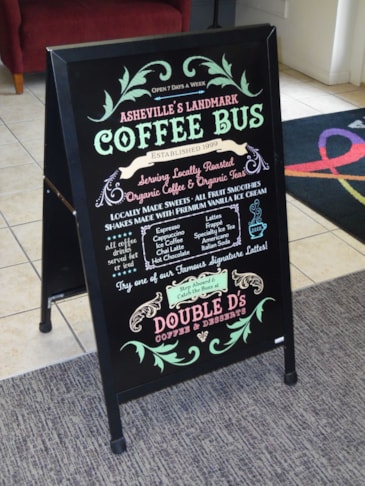 OPEN 7 DAYS A WEEK
ASHEVILLE'S LANDMARK
COFFEE BUS
ESTABLISHED 1999
Serving Locally Roasted
Organic Coffee & Organic Teas
LOCALLY MADE SWEETS · ALL FRUIT SMOOTHIES
SHAKES MADE WITH PREMIUM VANILLA ICE CREAM
All coffee
drinks
served hot
or iced
Espresso
Cappuccino
Ice Coffee
Chai Latte
Hot Chocolate
Lattes
Frappé
Specialty Ice Tea
Americano
Italian Soda
Try one of our Famous Signature Lattes!
Step Aboard &
Catch the Buzz at
DOUBLE D's
COFFEE & DESSERTS